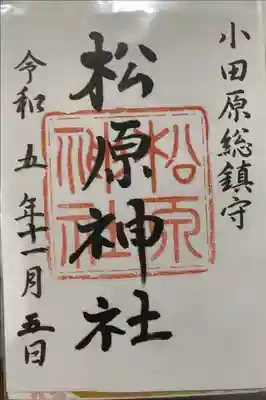 小田原総鎮守
松原神社
松原
神社
令和五年十一月五日